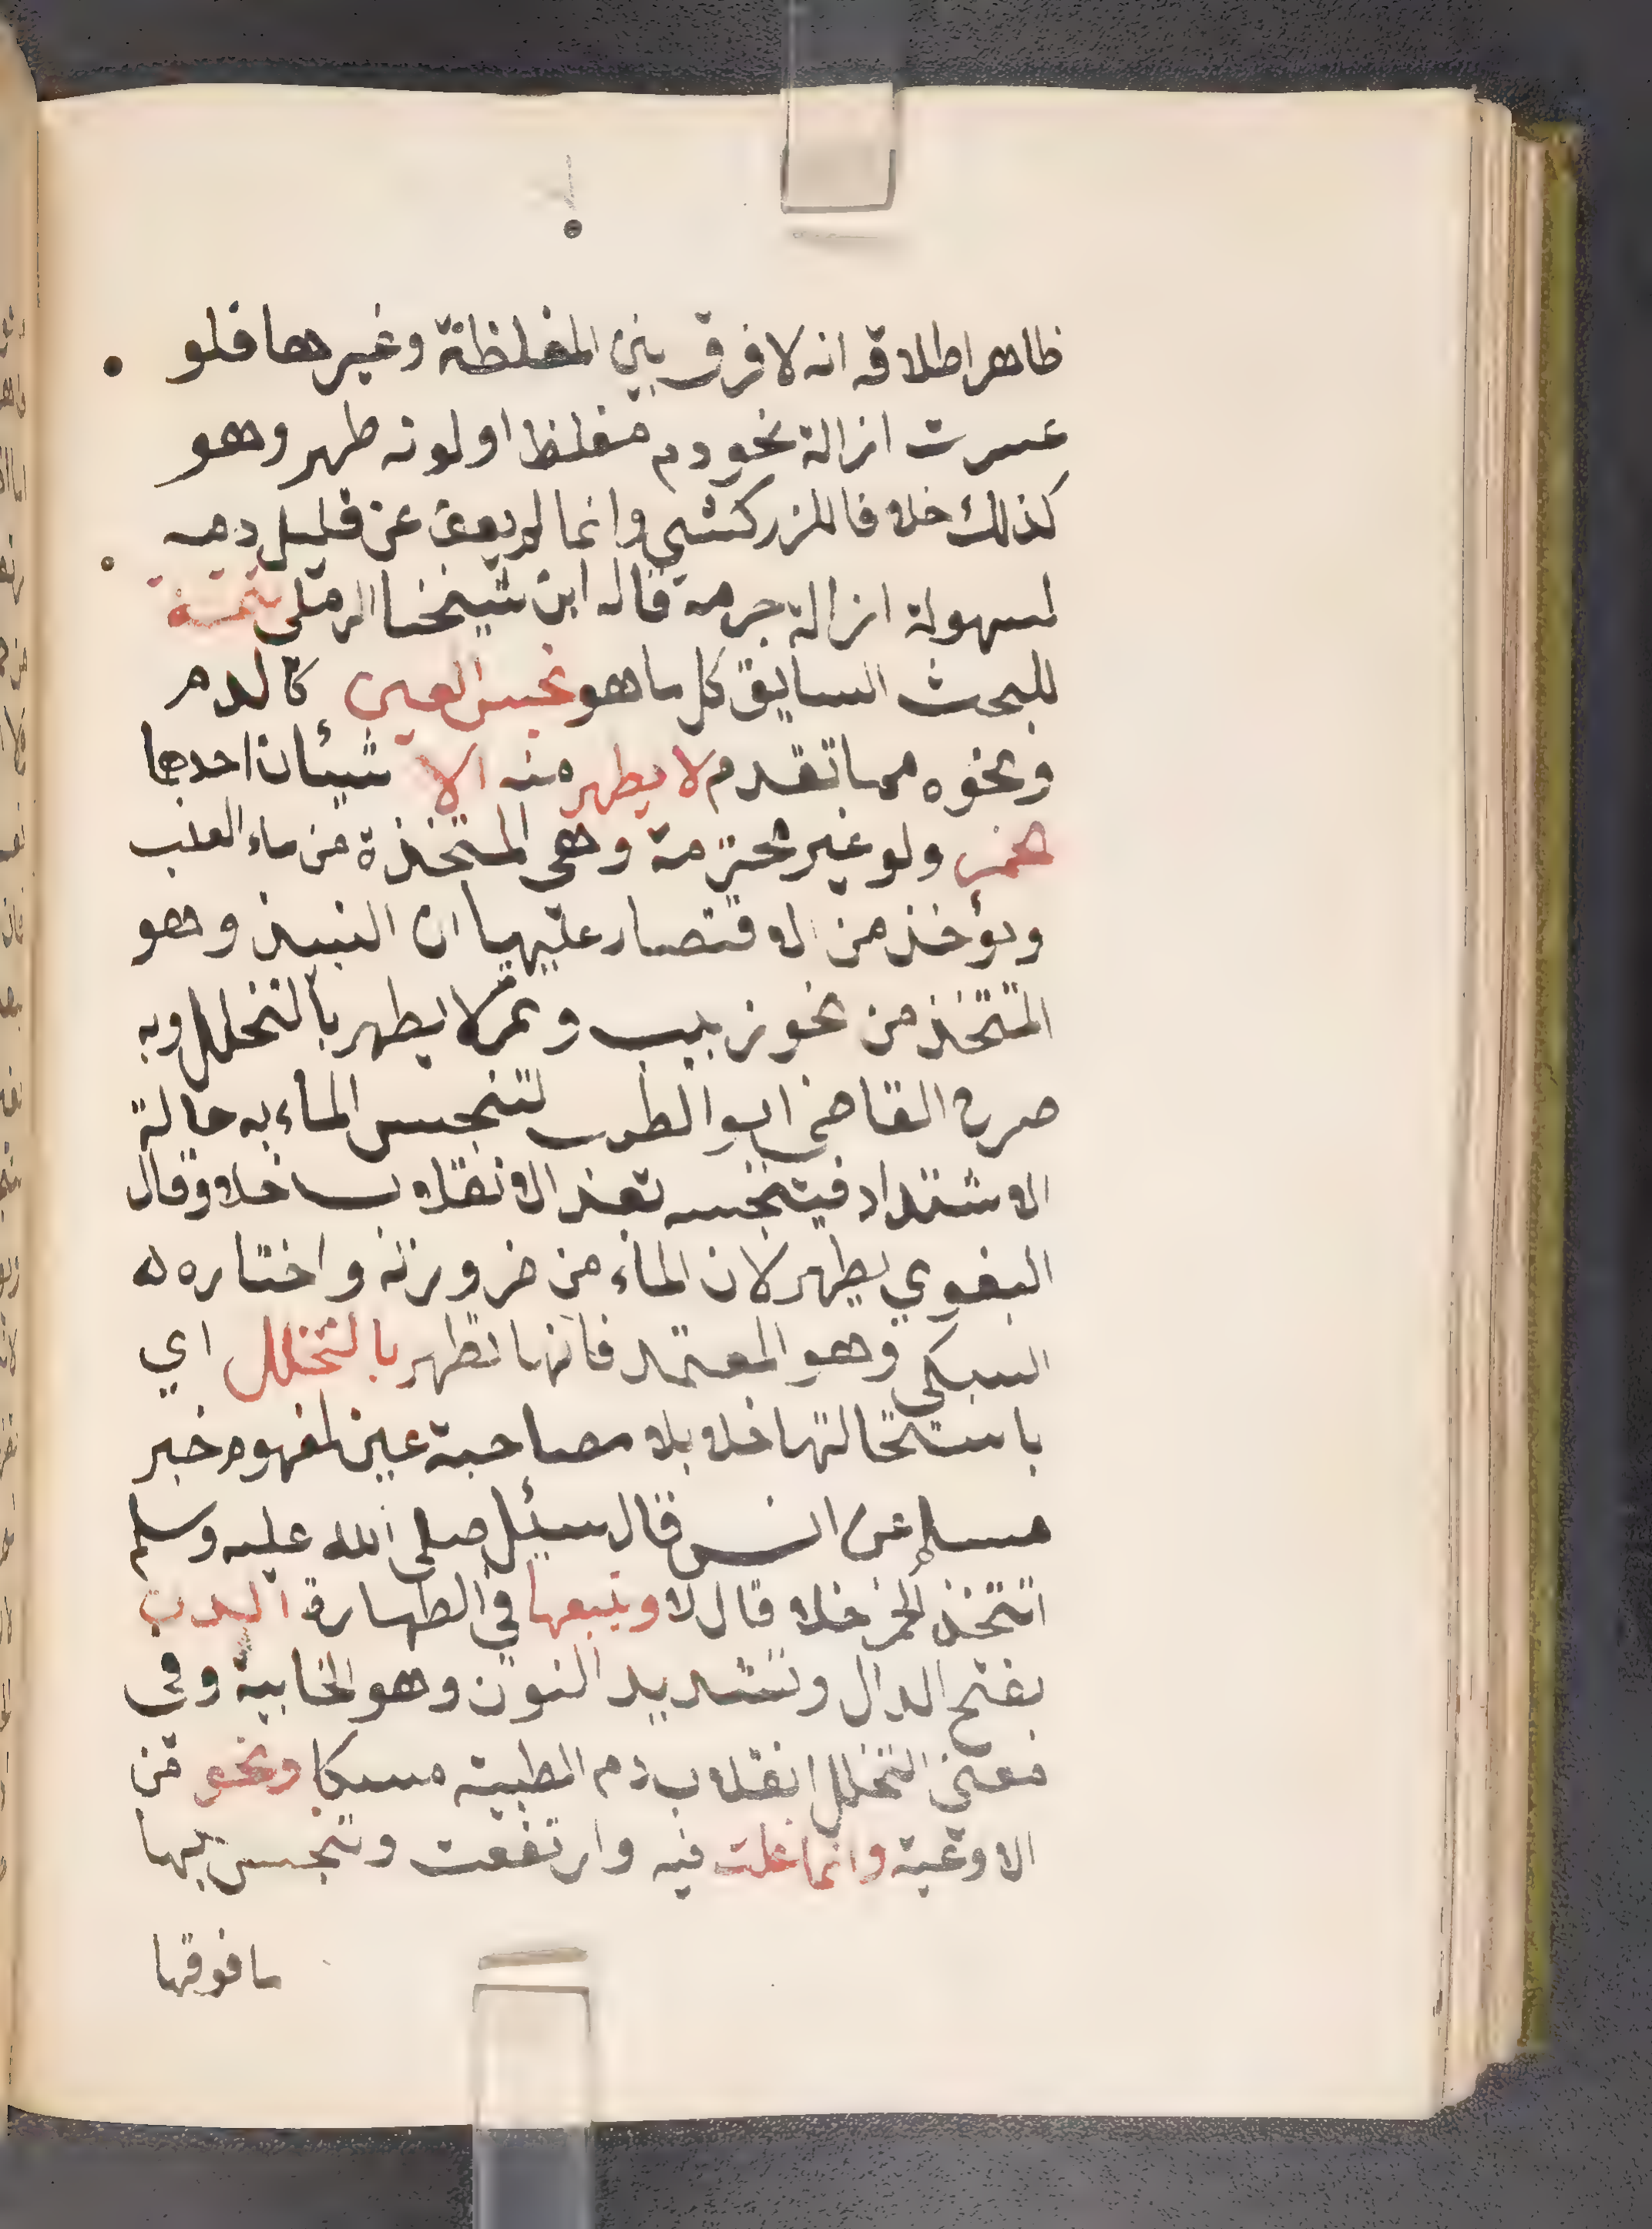 ظاهر اطلاقه انه لا فرق بين المغلظة وغيرها فلو
عسرت ازالة نحو دم مغلظ او لونه طهر وهو
كذلك خلافا للزركشي وانما لم يعف عن قليل دمه
لسهولة ازالة جرمه قاله ابن شيخنا الرملي تتمة
للبحث السابق كل ما هو نجس العين كالدم
ونحوه مما تقدم لا يطهر منه الا شيئان احدهما
خمر ولو غير محترمة وهي المتخذة من ماء العنب
ويؤخذ من الاقتصار عليها ان النبيذ وهو
المتخذ من نحو زبيب وتمر لا يطهر بالتخلل وبه
صرح القاضي ابو الطيب لتنجس الماء به حالة
الاشتداد فينجسه بعد الانقلاب خلا وقال
البغوي يطهر لان الماء من ضرورته واختاره
السبكي وهو المعتمد فانها تطهر بالتخلل اي
باستحالتها خلا بلا مصاحبة عين لمفهوم خبر
مسلم عن انس قال سئل صلى الله عليه وسلم
اتتخذ الخمر خلا قال لا ويتبعها في الطهارة الدن
بفتح الدال وتشديد النون وهو الخابية وفي
معنى التخلل انقلاب دم الظبية مسكا ونحو من
الاوعية وانما غلت فيه وارتفعت وتنجس بها
ما فوقها